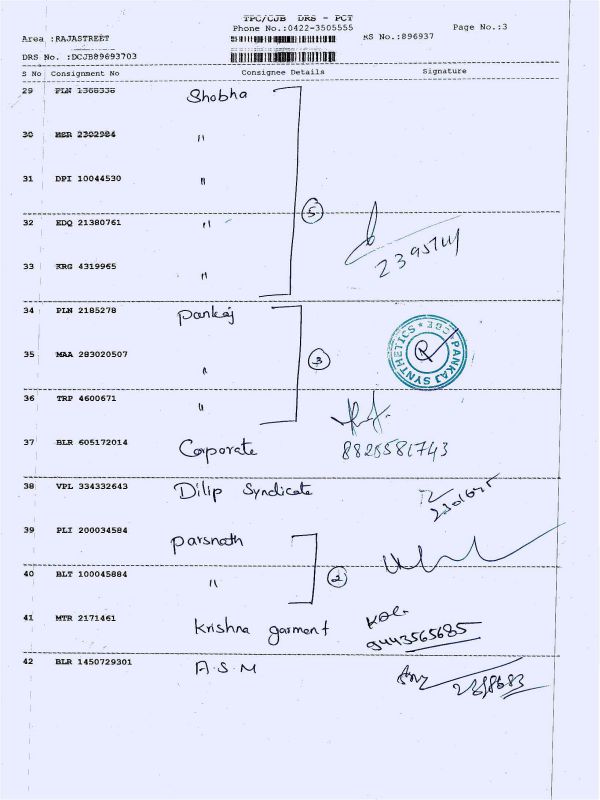 TPC/CJB DRS - PCT
Phone No.:0422-3505555
Page No.:3
Area :RAJASTREET
RS No.:896937
DRS No. :DCJB89693703
S No Consignment No Consignee Details Signature
29 PLN 1368338 Shobha
30 MSR 2302984 "
31 DPI 10044530 "
32 EDQ 21380761 "
5
33 KRG 4319965 "
2395741
34 PLN 2185278 Pankaj
35 MAA 283020507 "
3
PANKAJ SYNTHETICS
36 TRP 4600671 "
37 BLR 605172014 Corporate
8826581743
38 VPL 334332643 Dilip Syndicate
2301675
39 PLI 200034584 Parsnath
40 BLT 100045884 "
2
41 MTR 2171461 Krishna garment
9443565685
42 BLR 1450729301 A.S.M